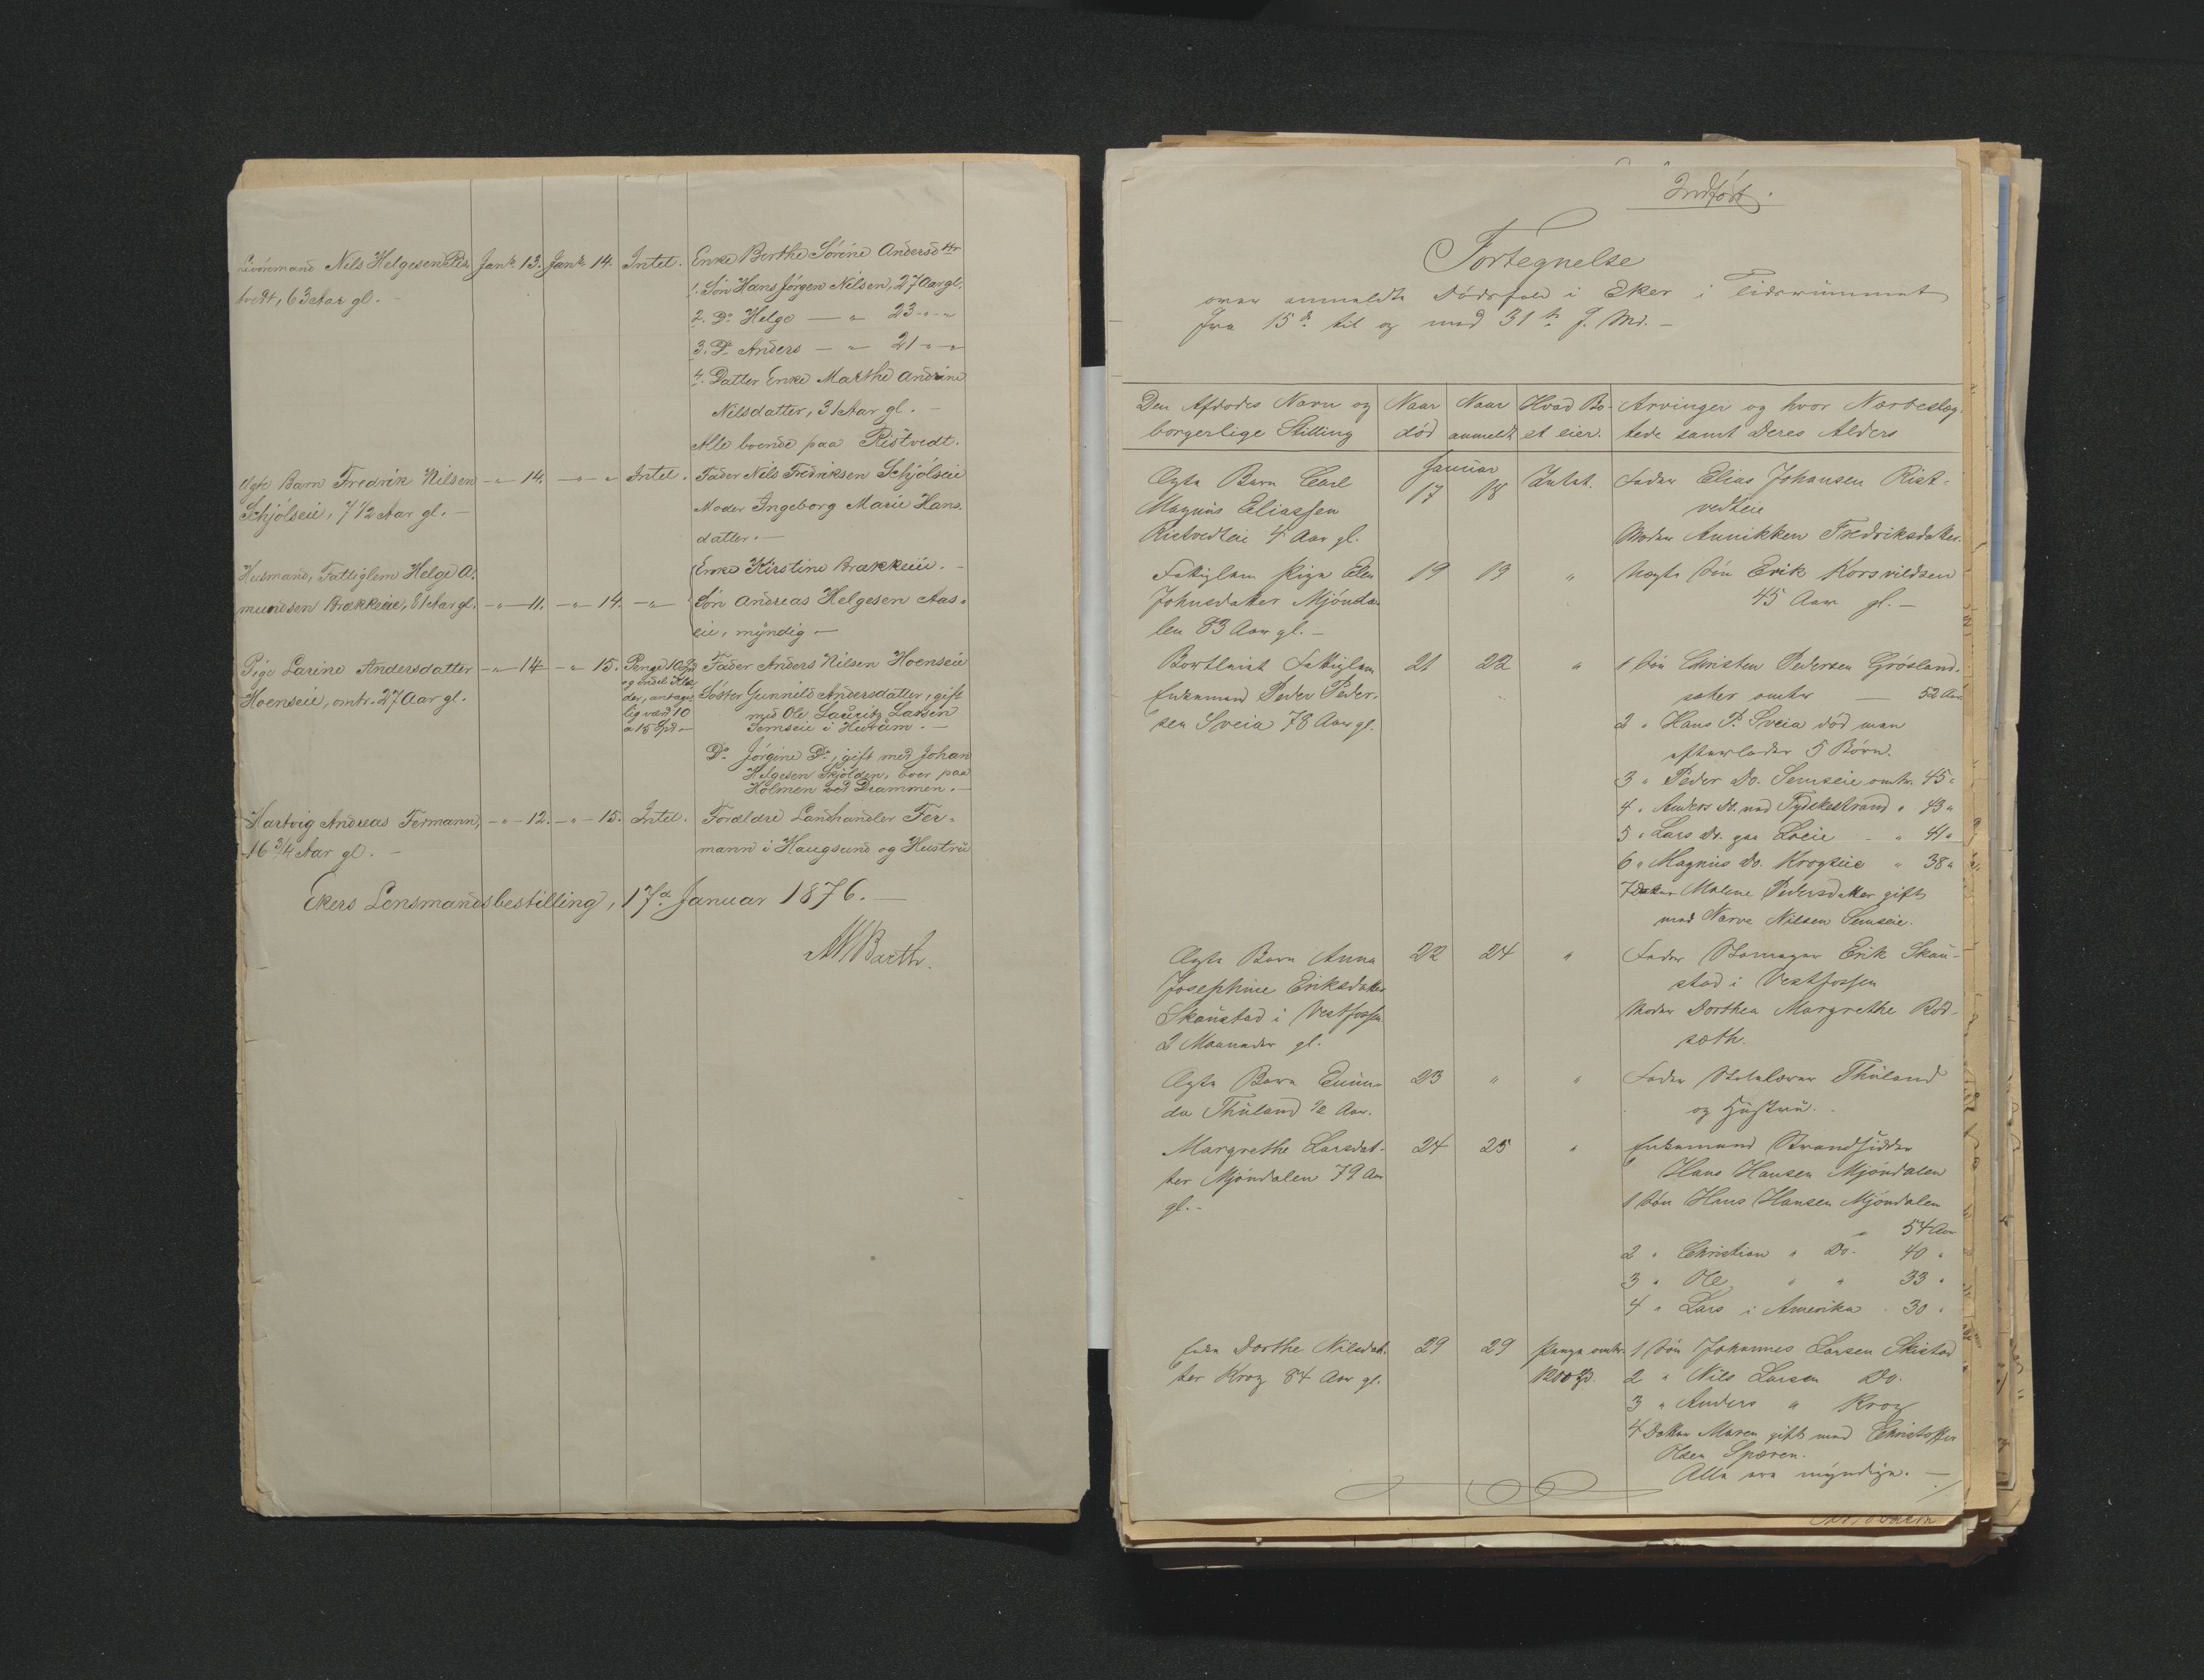 Nils Helgesen Ris- Janr. 13. Janr. 14. Intet. Enke Berthe Sørine Andersdtr
tvedt, 63 Aar gl. -
1. Søn Hans Jørgen Nilsen, 27 Aar gl.
2. Do Helge — " 23 " "
3. Do Anders — " 21 " "
4. Datter Enke Marthe Andrine
Nilsdatter, 31 Aar gl. -
Alle boende paa Ristvedt.
Ægte Barn Fredrik Nilsen - " - 14. - " - " Intet. Fader Nils Fredriksen Schjølseie
Schjølseie, 7 1/2 Aar gl. -
Moder Ingeborg Marie Hans-
datter. -
Enke Kirstine Brækkeie. -
Husmand, Fattiglem Helge A-
mundsen Brækkeie, 81 Aar gl. - " - 11. - " - 14. - " - Søn Andreas Helgesen Aas-
eie, myndig -
Pige Larine Andersdatter - " - 14 - " - 15. Penge 10 Spd Fader Anders Nilsen Hoenseie
Hoenseie, omtr. 27 Aar gl.
og endel Klæ-
der, antage-
lig værd 10
a 15 Spd -
Søster Gunnild Andersdatter, gift
med Ole Lauritz Larsen
Semseie i Hurum. -
Do Jørgine Do, gift med Johan
Helgesen Skjolden, boer paa
Holmen ved Drammen. -
Hartvig Andreas Fermann, - " - 12. - " - 15. Intet. Forældre Landhandler Fer-
16 3/4 Aar gl. -
mann i Haugsund og Hustru
Ekers Lensmandsbestilling, 17d Januar 1876. -
Barth.
Indført.
Fortegnelse
over anmeldte Dødsfald i Eker i Tidsrummet
fra 15de til og med 31te J. Md. -
Den Afdødes Navn og Naar Naar Hvad Bo- Arvinger og hvor Nærbeslæg-
borgerlige Stilling død anmeldt et eier. tede samt Deres Alders
Januar
Ægte Barn Carl 17 18 Intet. Fader Elias Johansen Rist-
Magnus Eliassen vedteie
Ristvedteie 4 Aar gl. Moder Annikken Fredriksdatter.
Fattiglem Pige Elen 19 19 " Uægte Søn Erik Korsvildsen
Johnsdatter Mjønda- 45 Aar gl. -
len 83 Aar gl. -
Bortleiet Fattiglem 21 22 " 1 Søn Christen Pedersen Grøsland-
Enkemand Peder Peder- sæter omtr — 52 Aar
sen Sveia 78 Aar gl. 2 " Hans P. Sveia død men
efterlader 5 Børn.
3 " Peder Do. Semseie omtr. 45 "
4 " Anders Do. ved Tydskestrand " 43 "
5 " Lars Do. paa Loeie - " 41 "
6 " Magnus Do. Krogseie " 38 "
7 Datter Malene Pedersdatter gift
med Narve Nilsen Semseie.
Ægte Barn Anna 22 24 " Fader Skomager Erik Skau-
Josephine Eriksdatter stad i Vestfossen
Skaustad i Vestfossen Moder Dorthea Margrethe Rød-
2 Maaneder gl. sæth.
Ægte Barn 23 " " Fader Skolelærer Thuland
da Thuland 1/2 Aar. og Hustru. -
Margrethe Larsdat- 24 25 " Enkemand Strandsidder
ter Mjøndalen 79 Aar Hans Hansen Mjøndalen
gl. - 1 Søn Hans Hansen Mjøndalen
54 Aar
2 " Christian " Do. 40 "
3 " Ole " " 33 "
4 " Lars i Amerika - 30 "
Enke Dorthe Nilsdat- 29 29 Penge omtr. 1 Søn Johannes Larsen Skistad
ter Krog 84 Aar gl. 1200 Spd. 2 " Nils Larsen Do.
3 " Anders " Krog
4 Datter Maren gift med Christoffer
Olsen Spæren.
Alle ere myndige. -